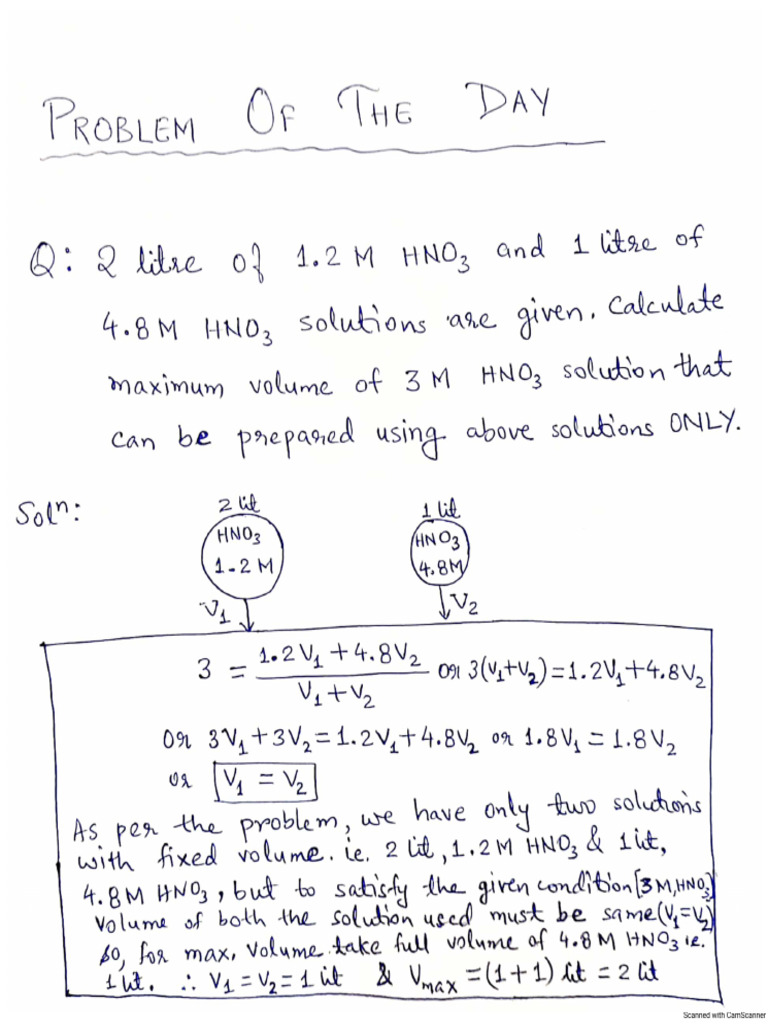 PROBLEM OF THE DAY
Q: 2 litre of 1.2 M HNO₃ and 1 litre of
4.8 M HNO₃ solutions are given. Calculate
maximum volume of 3 M HNO₃ solution that
can be prepared using above solutions ONLY.
Solⁿ:
2 lit
1 lit
HNO₃
1.2 M
HNO₃
4.8M
V₁
V₂
3 = (1.2V₁ + 4.8V₂)/(V₁+V₂) or 3(V₁+V₂)=1.2V₁+4.8V₂
or 3V₁+3V₂=1.2V₁+4.8V₂ or 1.8V₁ = 1.8V₂
or V₁ = V₂
As per the problem, we have only two solutions
with fixed volume. ie. 2 lit, 1.2 M HNO₃ & 1 lit,
4.8 M HNO₃, but to satisfy the given condition [3M, HNO₃]
volume of both the solution used must be same (V₁=V₂)
so, for max. volume take full volume of 4.8 M HNO₃ ie.
1 lit. ∴ V₁ = V₂ = 1 lit & Vmax = (1+1) lit = 2 lit
Scanned with CamScanner